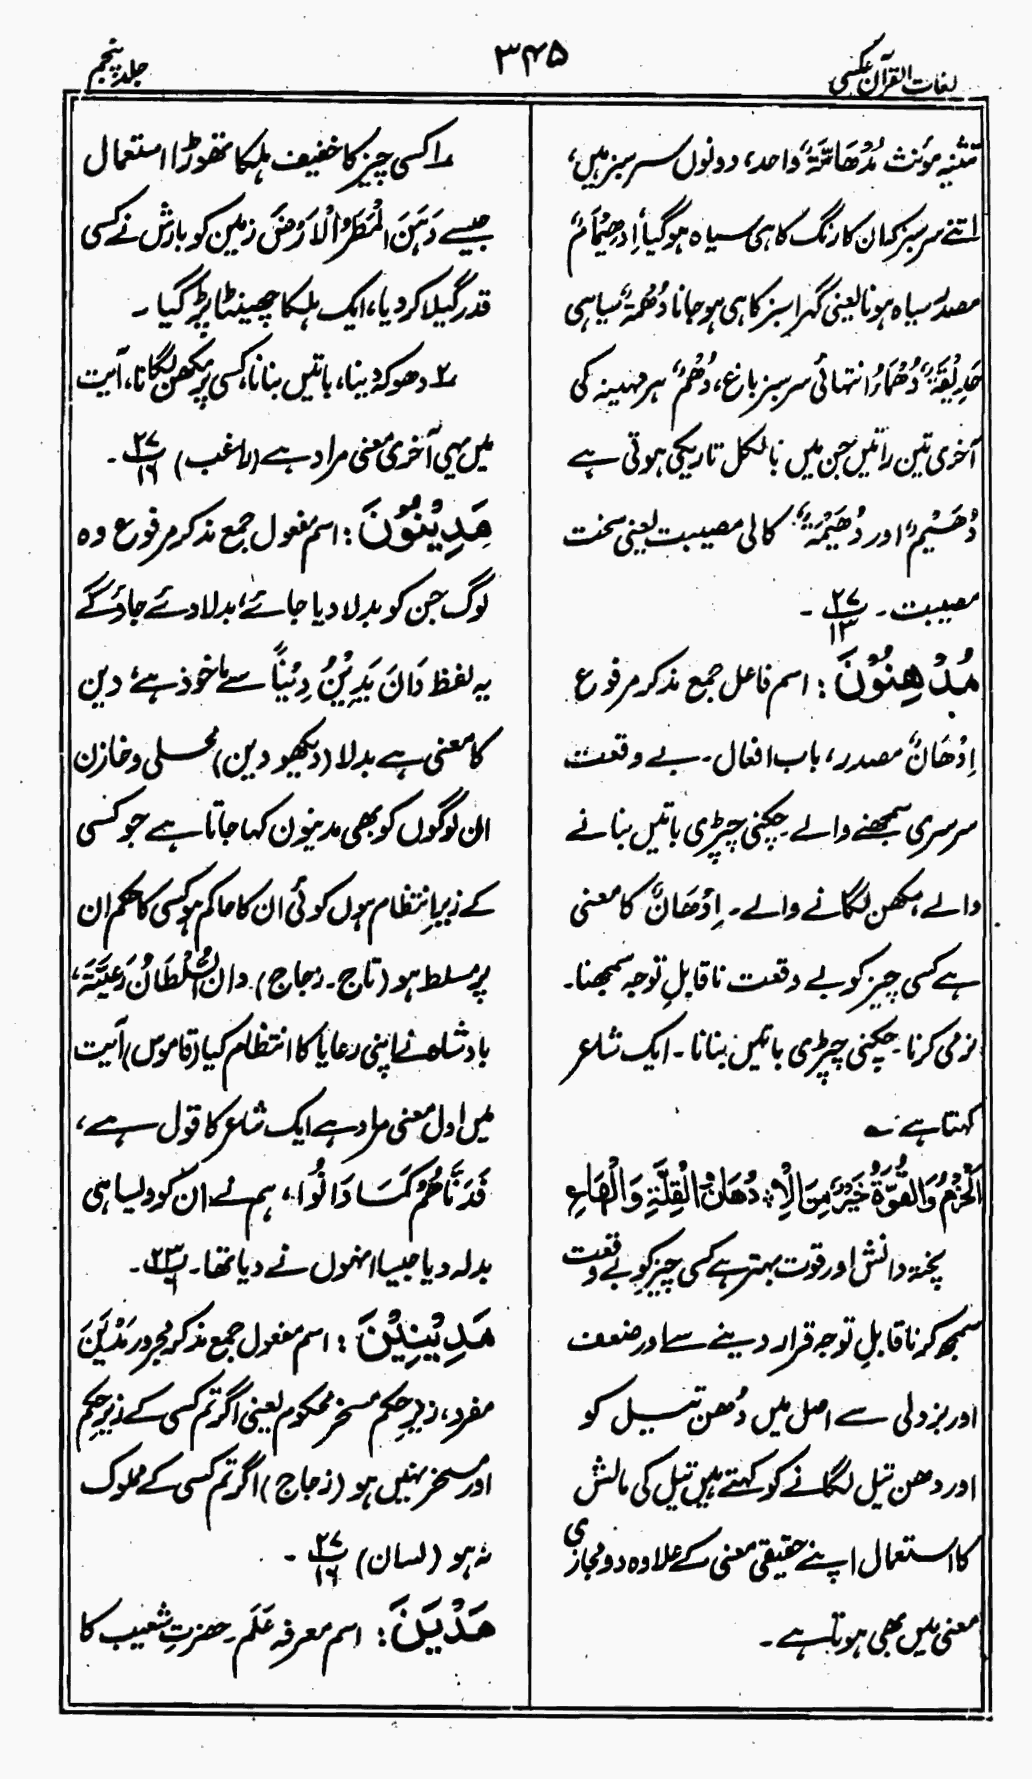 لغات القرآن عکسی
۳۴۵
جلد پنجم
تثنیہ مؤنث مُدْھَامَّۃٌ واحد، دونوں سرسبز ہیں،
اتنے سرسبز کہ ان کا رنگ کاہی سیاہ ہو گیا اِدْھِیْمَامٌ
مصدر سیاہ ہونا یعنی گہرا سبز کاہی ہو جانا دُھْمَۃٌ سیاہی
حَدِیْقَۃٌ دُھْمَاءُ انتہائی سرسبز باغ، دُھْمٌ ہر مہینہ کی
آخری تین راتیں جن میں بالکل تاریکی ہوتی ہے
دُھَیْمٌ اور دُھَیْمَۃٌ کالی مصیبت یعنی سخت
مصیبت۔ ۲۷/۱۳ ۔
مُدْھِنُوْنَ : اسم فاعل جمع مذکر مرفوع
اِدْھَانٌ مصدر، باب افعال۔ بے وقعت
سرسری سمجھنے والے چکنی چپڑی باتیں بنانے
والے مکھن لگانے والے۔ اِدْھَانٌ کا معنی
ہے کسی چیز کو بے وقعت ناقابلِ توجہ سمجھنا۔
نرمی کرنا۔ چکنی چپڑی باتیں بنانا۔ ایک شاعر
کہتا ہے ؎
اَلْحَزْمُ وَالْقُوَّۃُ خَیْرٌ مِنَ الْاِ : دْھَانِ وَالْقِلَّۃِ وَالْھَاعِ
پختہ دانش اور قوت بہتر ہے کسی چیز کو بے وقعت
سمجھ کر ناقابلِ توجہ قرار دینے سے اور ضعف
اور بزدلی سے اصل میں دُھن تیل کو
اور دھن تیل لگانے کو کہتے ہیں تیل کی مالش
کا استعمال اپنے حقیقی معنی کے علاوہ دو مجازی
معنی میں بھی ہوتا ہے۔
۱؎ کسی چیز کا خفیف ہلکا تھوڑا استعمال
جیسے دَہَنَ الْمَطَرُ الْاَرْضَ زمین کو بارش نے کسی
قدر گیلا کر دیا، ایک ہلکا چھینٹا پڑ گیا ۔
۲؎ دھوکہ دینا، باتیں بنانا، کسی پر مکھن لگانا، آیت
میں یہی آخری معنی مراد ہے (راغب) ۲۷/۱۶ ۔
مَدِیْنُوْنَ : اسم مفعول جمع مذکر مرفوع وہ
لوگ جن کو بدلا دیا جائے، بدلا دئے جاؤ گے
یہ لفظ دَانَ یَدِیْنُ دِیْنًا سے ماخوذ ہے، دین
کا معنی ہے بدلا (دیکھو دین) محلی و خازن
ان لوگوں کو بھی مدینون کہا جاتا ہے جو کسی
کے زیرِ انتظام ہوں کوئی ان کا حاکم ہو کسی کا حکم ان
پر مسلط ہو (تاج۔ زجاج) دان السُّلْطَانُ رَعِیَّتَہٗ،
بادشاہ نے اپنی رعایا کا انتظام کیا (قاموس) آیت
میں اول معنی مراد ہے ایک شاعر کا قول ہے،
فَدَنَّاھُمْ کَمَا دَانُوْا، ہم نے ان کو ویسا ہی
بدلہ دیا جیسا انہوں نے دیا تھا۔ ۲۳/۶ ۔
مَدِیْنِیْنَ : اسم مفعول جمع مذکر مجرور مَدِیْنٌ
مفرد، زیرِ حکم مسخر محکوم یعنی اگر تم کسی کے زیرِ حکم
اور مسخر نہیں ہو (زجاج) اگر تم کسی کے مملوک
نہ ہو (لسان) ۲۷/۱۶ ۔
مَدْیَنَ : اسم معرفہ عَلَم۔ حضرتِ شعیب کا